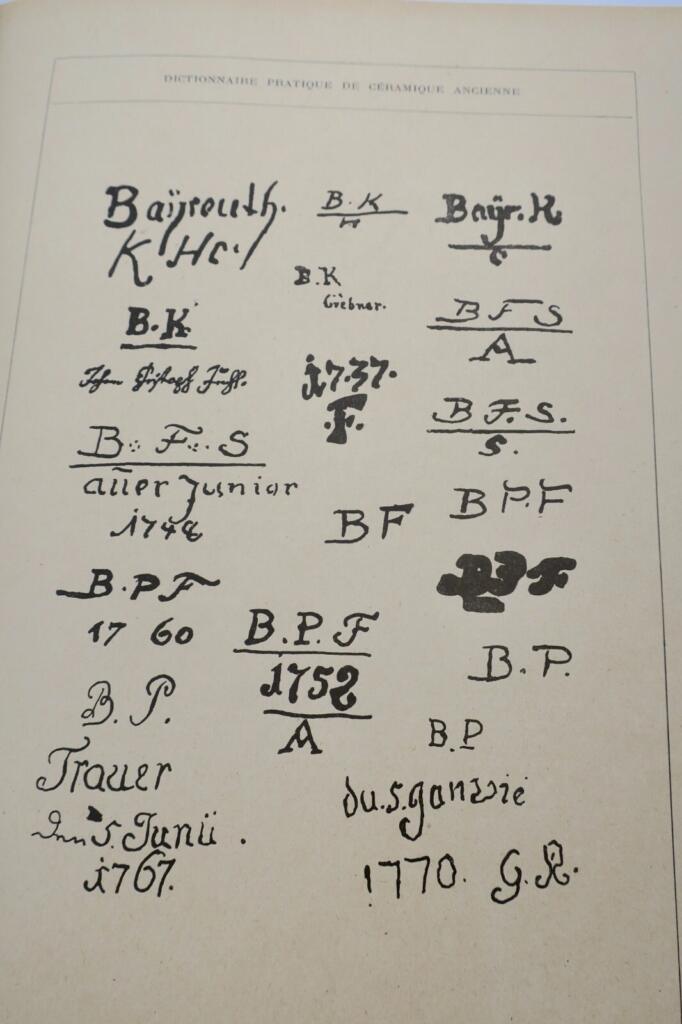 DICTIONNAIRE PRATIQUE DE CÉRAMIQUE ANCIENNE
Baÿreuth.
K Hc.
B. K
H
Bayr. K
C
B.K
Grebner.
B.K.
B F S
A
1737.
.F.
B. F. S.
S.
B. F. S
auer Junior
1748
B F
B P. F
B. P F
17 60
B. P. F
1752
A
B. P.
B. P.
B. P
Trauer
den 5. Junii.
1767.
du. s. ganzwie
1770. G. R.